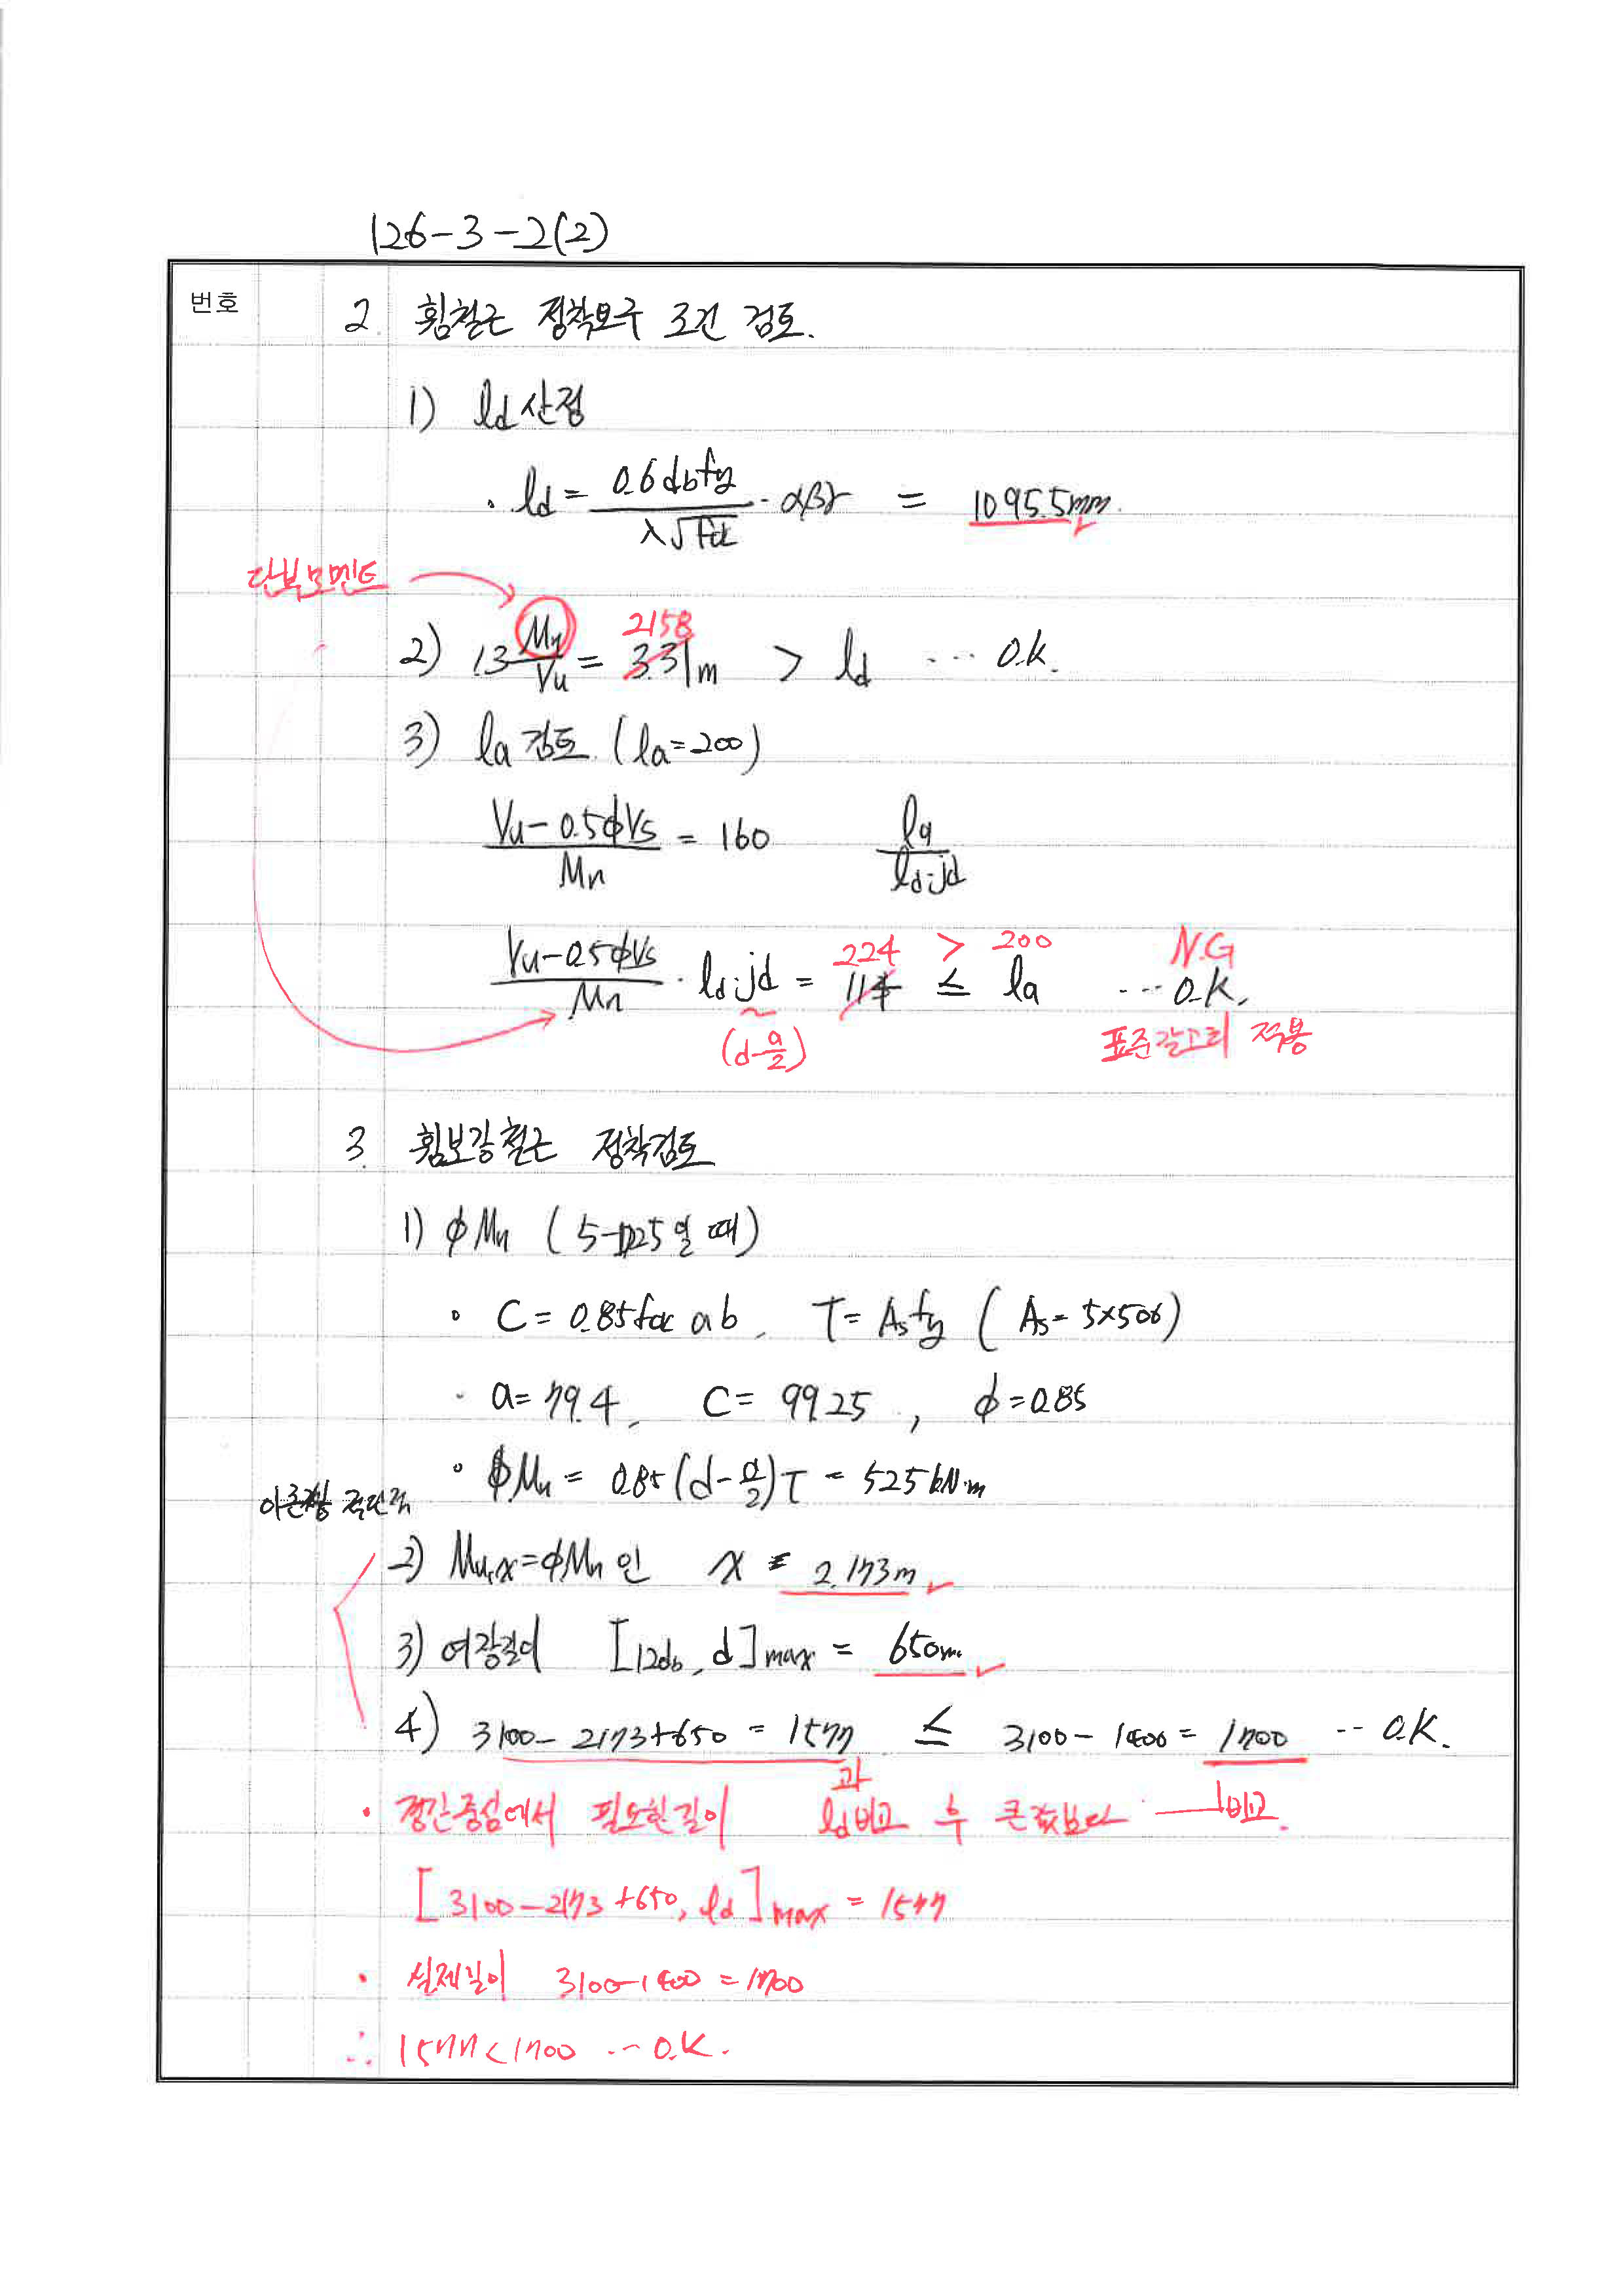 126-3-2(2)
번호
2. 휨철근 정착요구 조건 검토.
1) ld 산정
· ld = 0.6dbfy / λ√fck · αβγ = 1095.5mm.
단부모멘트
2) 1.3 Mn/Vu = 3.31m > ld ... O.K.
2158
3) la 검토 (la=200)
Vu-0.5ϕVs / Mn = 160 la / ld·jd
Vu-0.5ϕVs / Mn · ld·jd = 114 ≤ la ... O.K.
224 > 200 N.G
(d-a/2) 표준갈고리 적용
3. 휨보강철근 정착검토
1) ϕMn (5-D25일 때)
· C = 0.85fck ab, T = Asfy (As = 5×506)
· a = 79.4, C = 99.25, ϕ = 0.85
· ϕMn = 0.85(d-a/2)T = 525kN·m
2) Mu,x = ϕMn 인 x = 2.173m
3) 여장길이 [12db, d]max = 650m
4) 3100-2173+650 = 1577 ≤ 3100-1400 = 1700 ... O.K.
과
· 경간중심에서 필요한길이 ld비교 후 큰값보다 비교.
[3100-2173+650, ld]max = 1577
· 실제길이 3100-1400 = 1700
∴ 1577<1700 ... O.K.